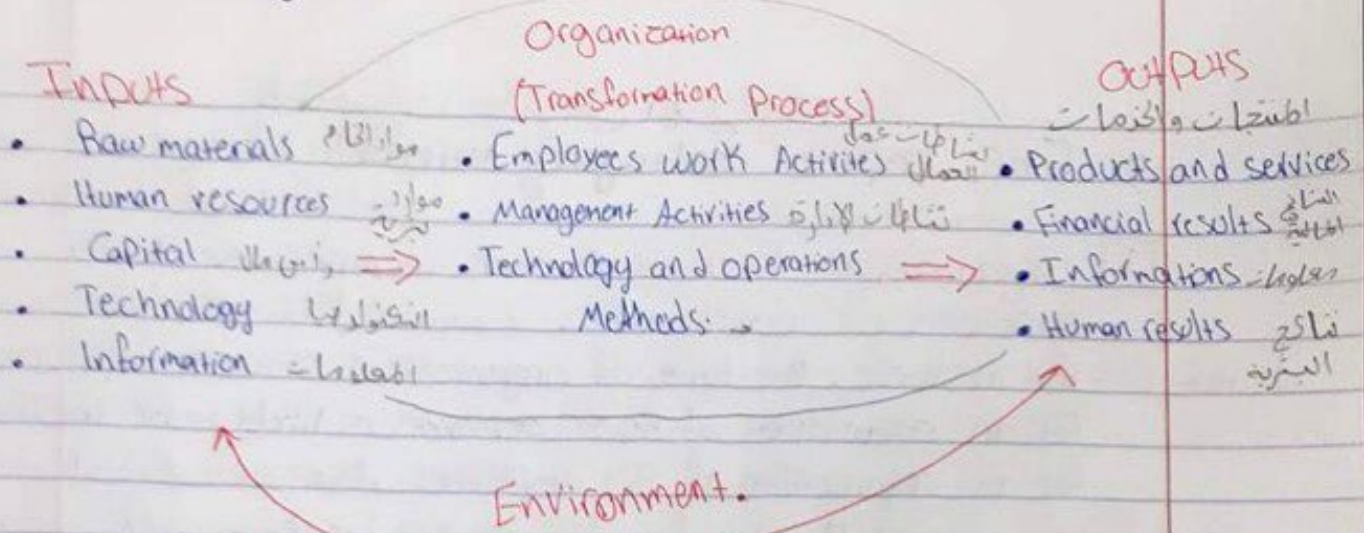 Organization
(Transformation Process)
Inputs
• Raw materials مواد الخام
• Human resources موارد بشرية
• Capital راس مال
• Technology التكنولوجيا
• Information المعلومات
• Employees work Activites نشاطات عمل العمال
• Management Activities نشاطات الإدارة
• Technology and operations
Methods.
Outputs
المنتجات والخدمات
• Products and services
• Financial results النتائج المالية
• Informations معلومات
• Human results نتائج
البشرية
Environment.